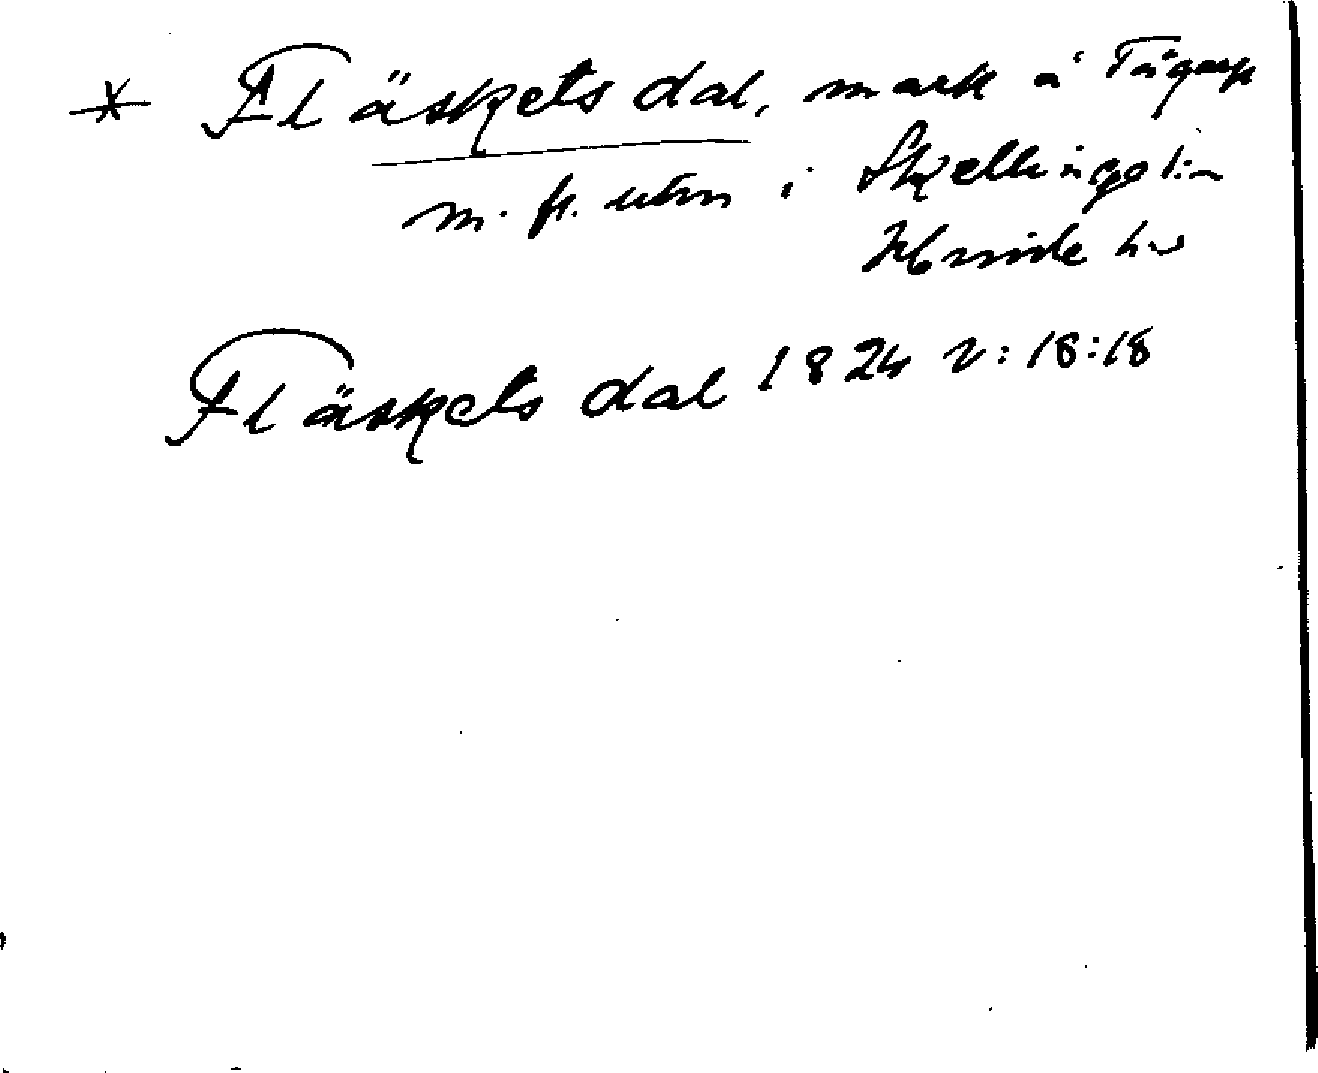 * Fläskets dal, mark å Tågarp
m. fl. utm i Skellinge
Fläskets dal 1824 2:18:18